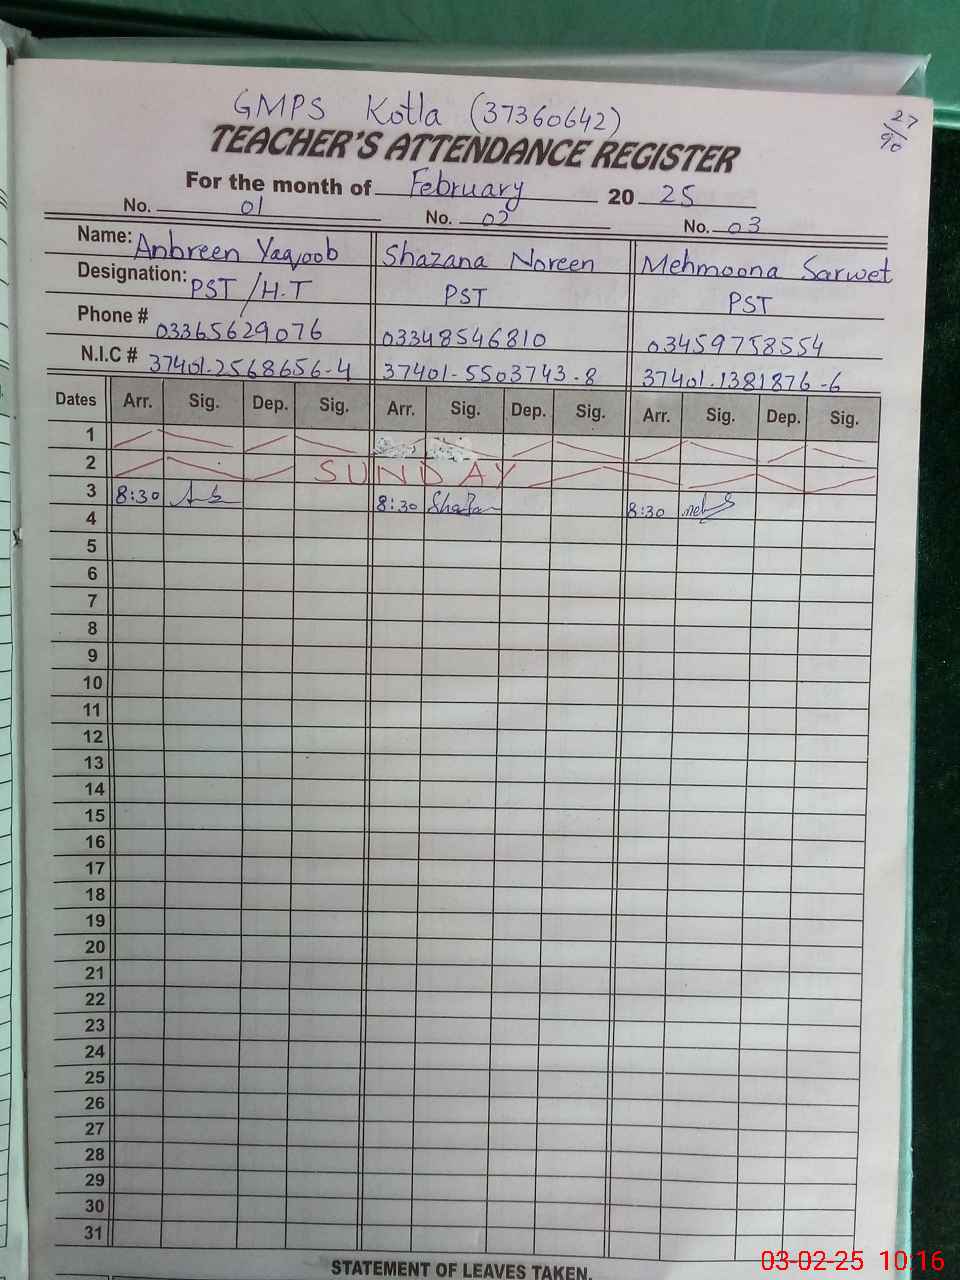 GMPS Kotla (37360642)
27
90
TEACHER'S ATTENDANCE REGISTER
For the month of February 20 25
No. 01 No. 02 No. 03
Name: Anbreen Yaqoob Shazana Noreen Mehmoona Sarwet
Designation: PST / H.T PST PST
Phone # 03365629076 03348546810 03459758554
N.I.C # 37401-2568656-4 37401-5503743-8 37401-1381876-6
Dates Arr. Sig. Dep. Sig. Arr. Sig. Dep. Sig. Arr. Sig. Dep. Sig.
1
2 SUNDAY
3 8:30 8:30 8:30
4
5
6
7
8
9
10
11
12
13
14
15
16
17
18
19
20
21
22
23
24
25
26
27
28
29
30
31
STATEMENT OF LEAVES TAKEN.
03-02-25 10:16